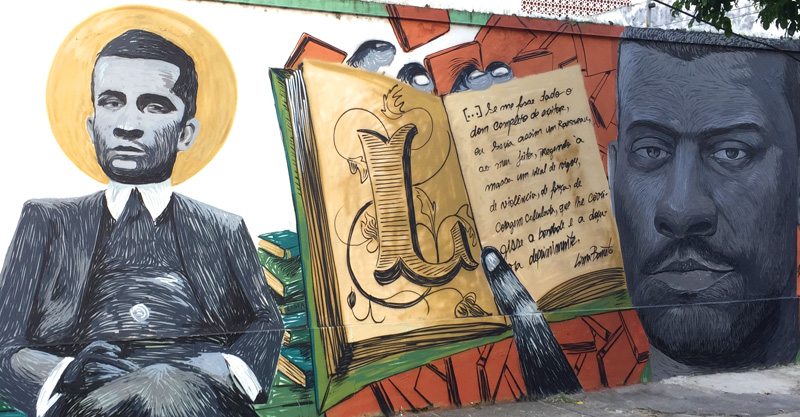 L
[...] Se me fosse dado o
dom completo de escritor,
eu havia assim um Rousseau,
ao meu jeito, pregando à
massa um ideal de vigor,
de violência, de força, de
coragem calculada, que lhe corri-
gisse a bondade e a doçu-
ra deprimente.
Lima Barreto